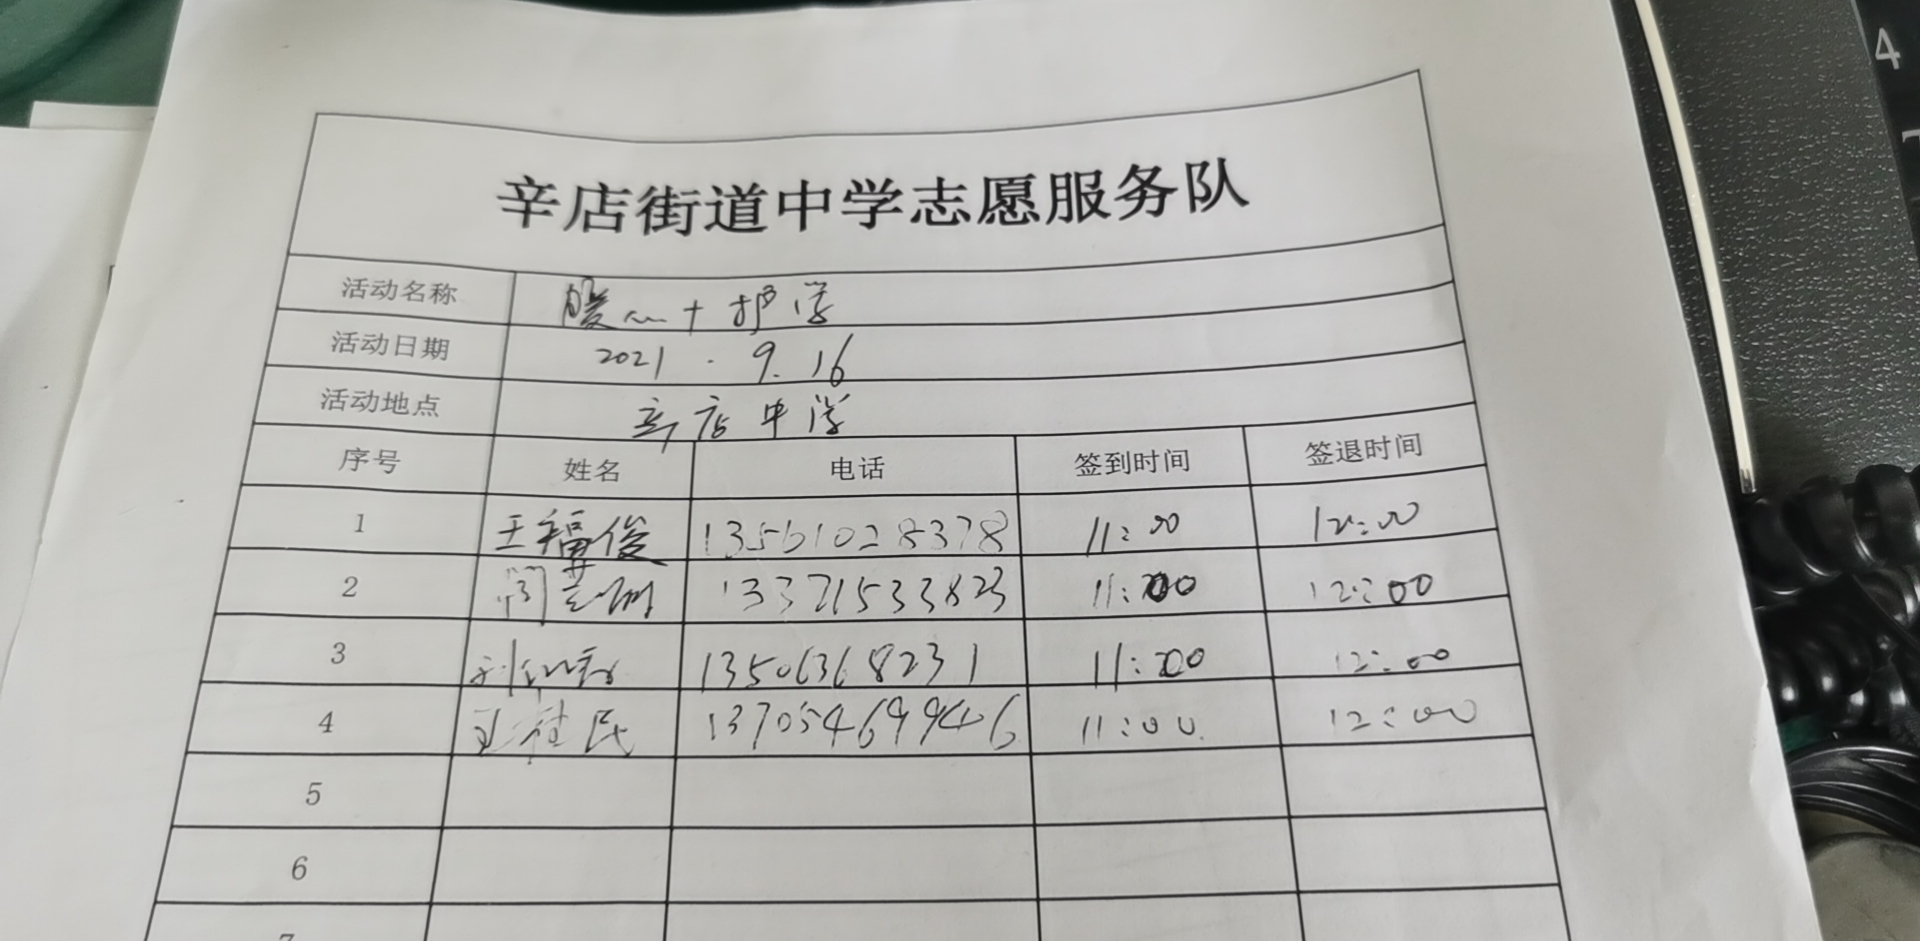 辛店街道中学志愿服务队
活动名称 暖心+护学
活动日期 2021.9.16
活动地点 辛店中学
序号 姓名 电话 签到时间 签退时间
1 王福俊 13561028378 11:00 12:00
2 13371533823 11:00 12:00
3 13506368231 11:00 12:00
4 王桂民 13705469946 11:00 12:00
5
6
7
4